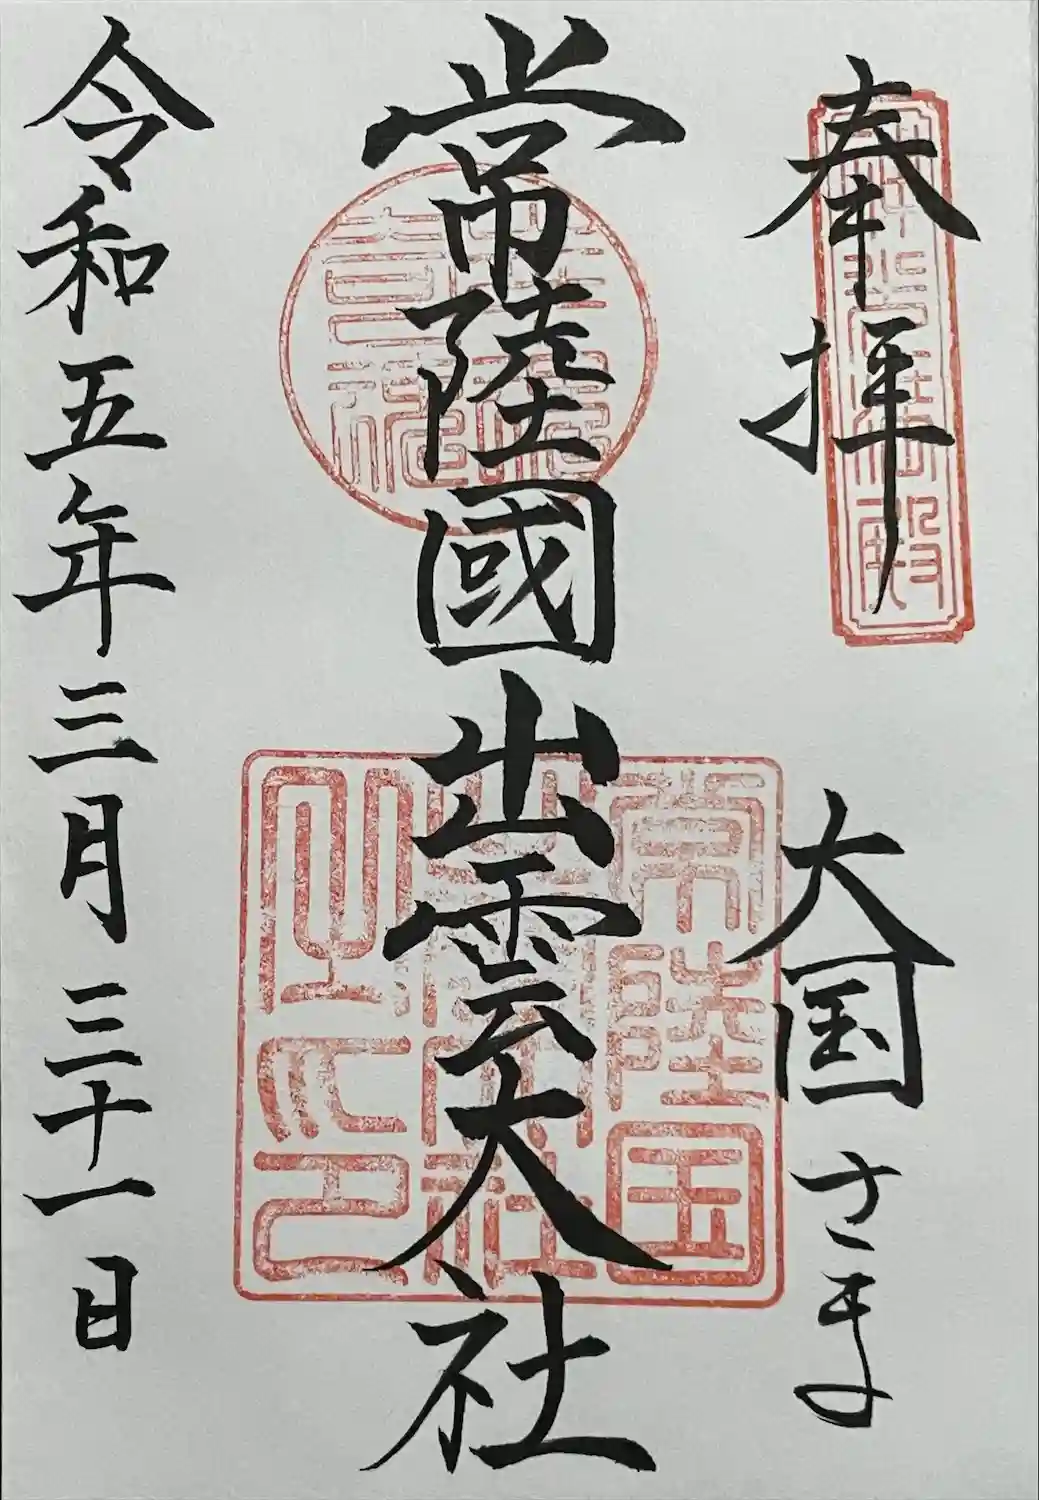 奉拝
大国さま
常陸國出雲大社
常陸国
令和五年三月三十一日